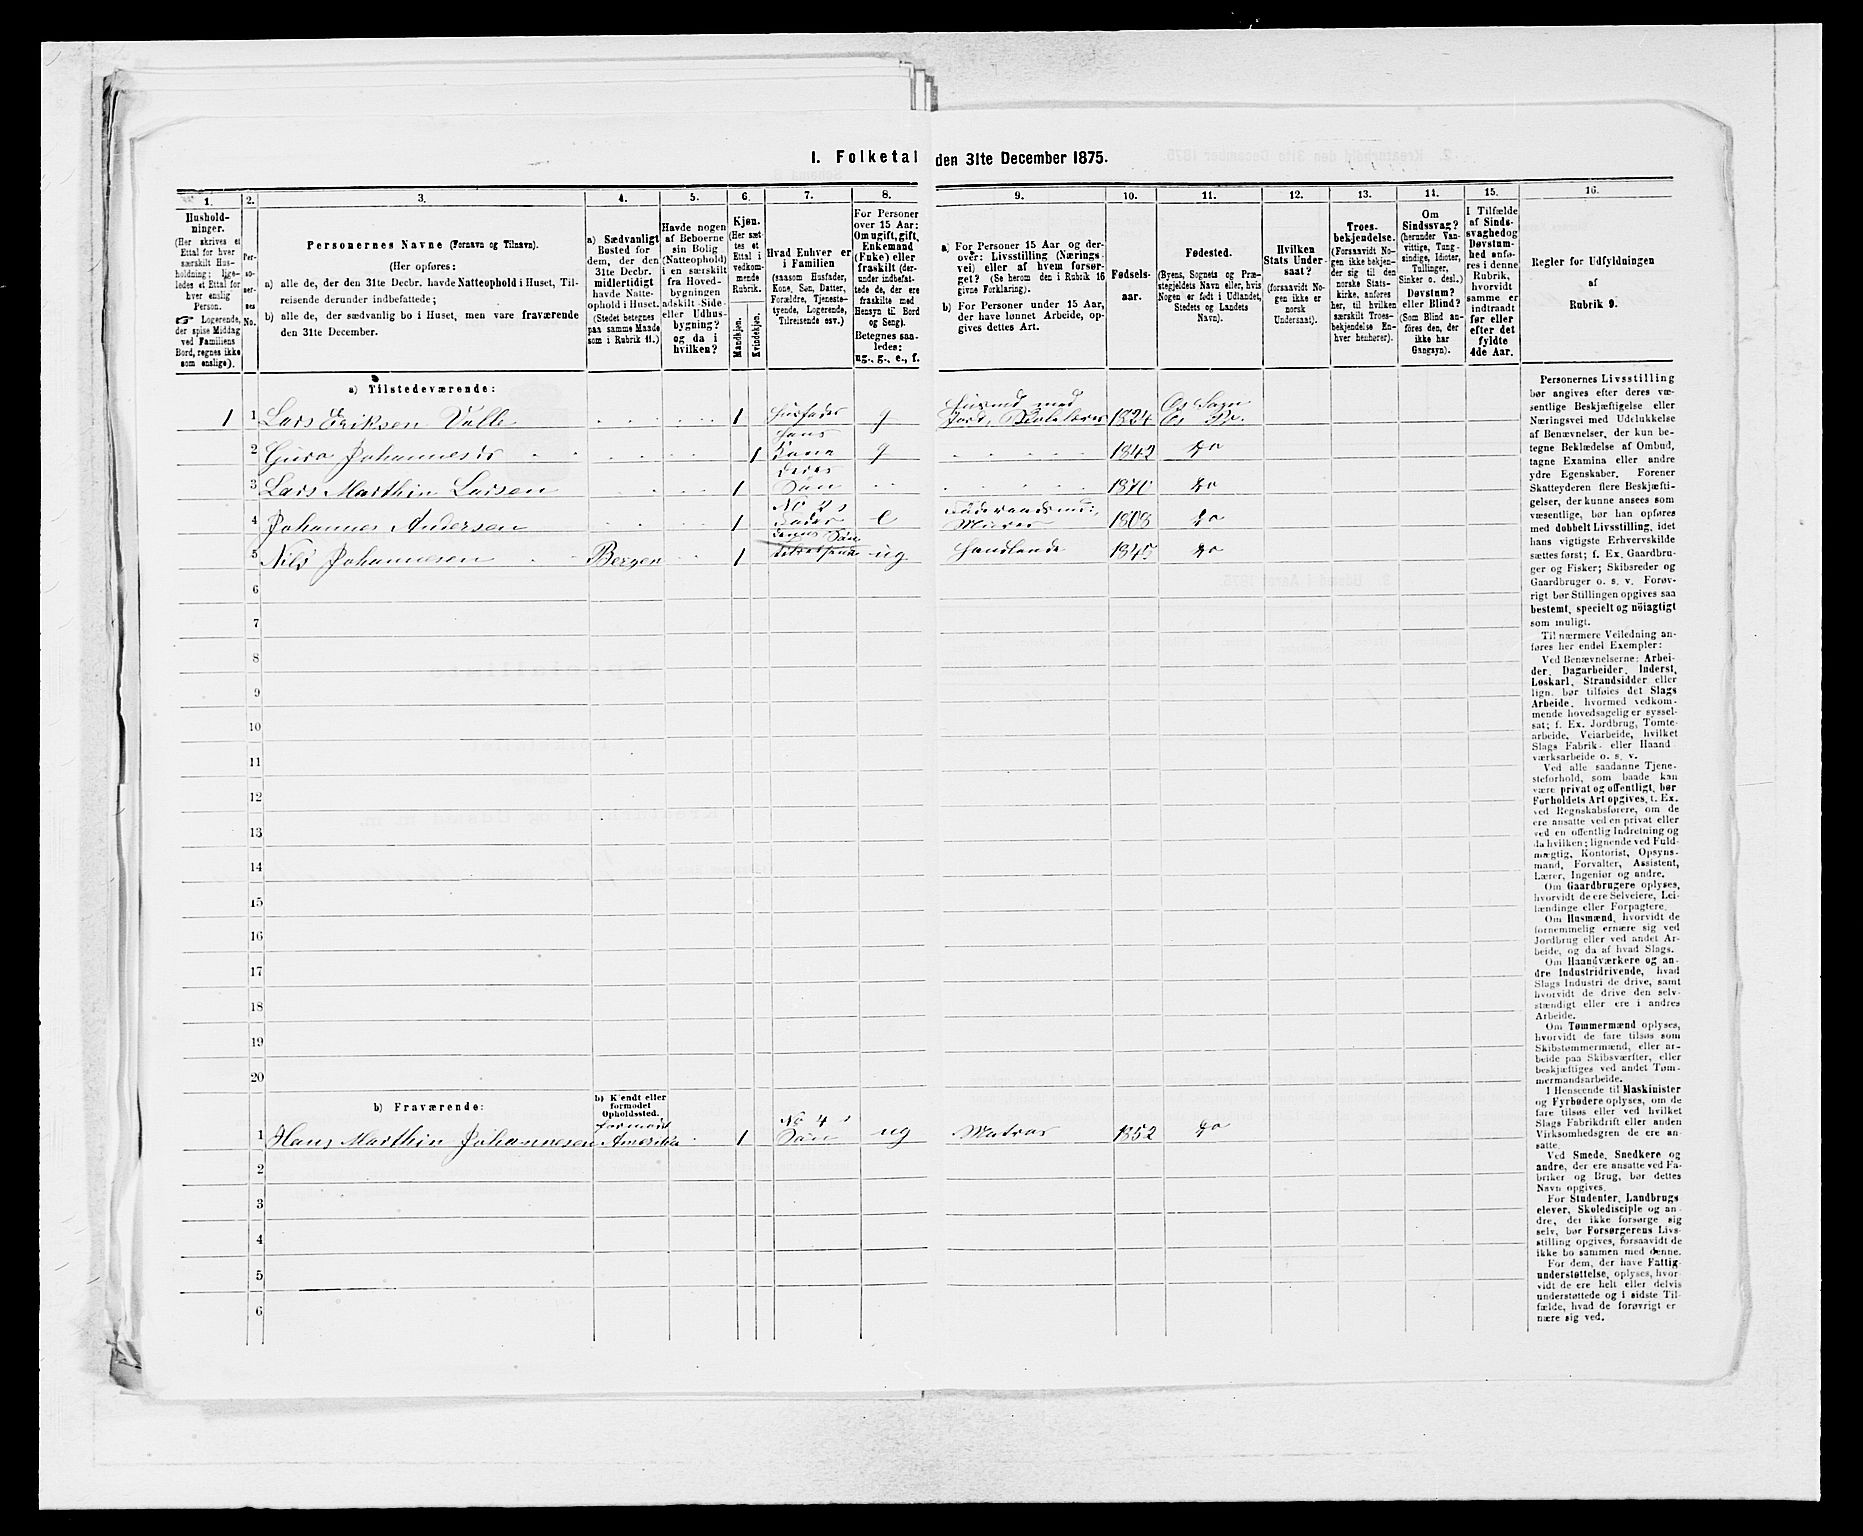 I. Folketal den 31te December 1875.
1. 2. 3. 4. 5. 6. 7. 8. 9. 10. 11. 12. 13. 14. 15. 16.
Hushold-
ninger.
(Her skrives et
Ettal for hver
særskilt Hus-
holdning; lige-
ledes et Ettal for
hver enslig
Person.
☛ Logerende,
der spise Middag
ved Familiens
Bord, regnes ikke
som enslige).
Per-
so-
ner-
nes
No.
Personernes Navne (Fornavn og Tilnavn).
(Her opføres:
a) alle de, der den 31te Decbr. havde Natteophold i Huset, Til-
reisende derunder indbefattede;
b) alle de, der sædvanlig bo i Huset, men vare fraværende
den 31te December.
a) Sædvanligt
Bosted for
dem, der den
31te Decbr.
midlertidigt
havde Natte-
ophold i Huset.
(Stedet betegnes
paa samme Maade
som i Rubrik 11.)
Havde nogen
af Beboerne
sin Bolig
(Natteophold)
i en særskilt
fra Hoved-
bygningen
adskilt Side-
eller Udhus-
bygning?
og da i
hvilken?
Kjøn.
(Her sæt-
tes et
Ettal i
vedkom-
mende
Rubrik.
Mandkjøn.
Kvindekjøn.
Hvad Enhver er
i Familien
(saasom Husfader,
Kone, Søn, Datter,
Forældre, Tjeneste-
tyende, Logerende,
Tilreisende osv.)
For Personer
over 15 Aar:
Om ugift, gift,
Enkemand
(Enke) eller
fraskilt (der-
under indbefat-
tede de, der ere
fraskilte med
Hensyn til Bord
og Seng).
Betegnes saa-
ledes:
ug., g., e., f.
a) For Personer 15 Aar og der-
over: Livsstilling (Nærings-
vei) eller af hvem forsør-
get? (Se herom den i Rubrik 16
givne Forklaring).
b) For Personer under 15 Aar,
der have lønnet Arbeide, op-
gives dettes Art.
Fødsels-
aar.
Fødested.
(Byens, Sognets og Præ-
stegjeldets Navn eller, hvis
Nogen er født i Udlandet,
Stedets og Landets
Navn).
Hvilken
Stats Under-
saat?
(forsaavidt No-
gen ikke er
norsk
Undersaat).
Troes-
bekjendelse.
(Forsaavidt No-
gen ikke bekjen-
der sig til den
norske Stats-
kirke, anføres
her, til hvilken
særskilt Troes-
bekjendelse En-
hver henhører).
Om
Sindssvag?
(herunder Van-
vittige, Tung-
sindige, Idioter,
Tullinger,
Sinker o. desl.)
Døvstum?
eller Blind?
(Som Blind an-
føres den, der
ikke har
Gangsyn).
I Tilfælde
af Sinds-
svaghed og
Døvstum-
hed anfø-
res i denne
Rubrik,
hvorvidt
samme er
indtraadt
før eller
efter det
fyldte
4de Aar.
Regler for Udfyldningen
af
Rubrik 9.
a) Tilstedeværende:
1 1 Lars Eriksen Valle 1 Husfader g Husmd med Jord, 1824 Os Sogn Os Pr.
2 Guro Johannesd. 1 Hans Kone g 1842 do
3 Lars Marthin Larsen 1 deres Søn 1870 do
4 Johannes Andersen 1 No 2s Fader e Føderaadsmd: Murer 1808 do
5 Nils Johannesen Bergen 1 Søn ug Handlende 1845 do
6
7
8
9
10
11
12
13
14
15
16
17
18
19
20
b) Fraværende:
b) Kjendt eller
formodet
Opholdssted.
1 Hans Marthin Johannesen formodt Amerika 1 No 4s Søn ug Matros 1852 do
2
3
4
5
6
Personernes Livsstilling
bør angives efter deres væ-
sentlige Beskjæftigelse eller
Næringsvei med Udelukkelse
af Benævnelser, der kun be-
tegne Beklædelse af Ombud,
tagne Examina eller andre
ydre Egenskaber. Forener
Skatteyderen flere Beskjæfti-
gelser, der kunne ansees som
væsentlige, bør han opføres
med dobbelt Livsstilling, idet
hans vigtigste Erhvervskilde
sættes først; f. Ex. Gaardbru-
ger og Fisker; Skibsreder og
Gaardbruger o. s. v. Forøv-
rigt bør Stillingen opgives saa
bestemt, specielt og nöiagtigt
som muligt.
Til nærmere Veiledning an-
føres her endel Exempler:
Ved Benævnelserne: Arbei-
der, Dagarbeider, Inderst,
Løskarl, Strandsidder eller
lign. bør tilføies det Slags
Arbeide, hvormed vedkom-
mende hovedsagelig er syssel-
sat; f. Ex. Jordbrug, Tomte-
arbeide, Veiarbeide, hvilket
Slags Fabrik- eller Haand
værksarbeide o. s. v.
Ved alle saadanne Tjene-
steforhold, som baade kan
være privat og offentligt, bør
Forholdets Art opgives, t. Ex.
ved Regnskabsførere, om de
ere ansatte ved en privat eller
ved en offentlig Indretning og
da hvilken; lignende ved Fuld-
mægtig, Kontorist, Opsyns-
mand, Forvalter, Assistent,
Lærer, Ingeniør og andre.
Om Gaardbrugere oplyses,
hvorvidt de ere Selveiere, Lei-
lændinge eller Forpagtere.
Om Husmænd, hvorvidt de
fornemmelig ernære sig ved
Jordbrug eller ved andet Ar-
beide, og da af hvad Slags.
Om Haandværkere og an-
dre Industridrivende, hvad
Slags Industri de drive, samt
hvorvidt de drive den selv-
stændigt eller ere i andres
Arbeide.
Om Tømmermænd oplyses,
hvorvidt de fare tilsøs som
Skibstømmermænd, eller ar-
beide paa Skibsværfter, eller
beskjæftiges ved andet Tøm-
mermandsarbeide.
I Henseende til Maskinister
og Fyrbødere oplyses, om de
fare tilsøs eller ved hvilket
Slags Fabrikdrift eller anden
Virksomhedsgren de ere an-
satte.
Ved Smede, Snedkere og
andre, der ere ansatte ved Fa-
briker og Brug, bør dettes
Navn opgives.
For Studenter, Landbrugs
elever, Skoledisciple og an
dre, der ikke forsørge sig
selv, bør Forsørgerens Livs-
stilling opgives, forsaavidt de
ikke bo sammen med denne.
For dem, der have Fattig-
understøttelse, oplyses, hvor-
vidt de ere helt eller delvis
understøttede og i sidste Til-
fælde, hvad de forøvrigt er
nære sig ved.